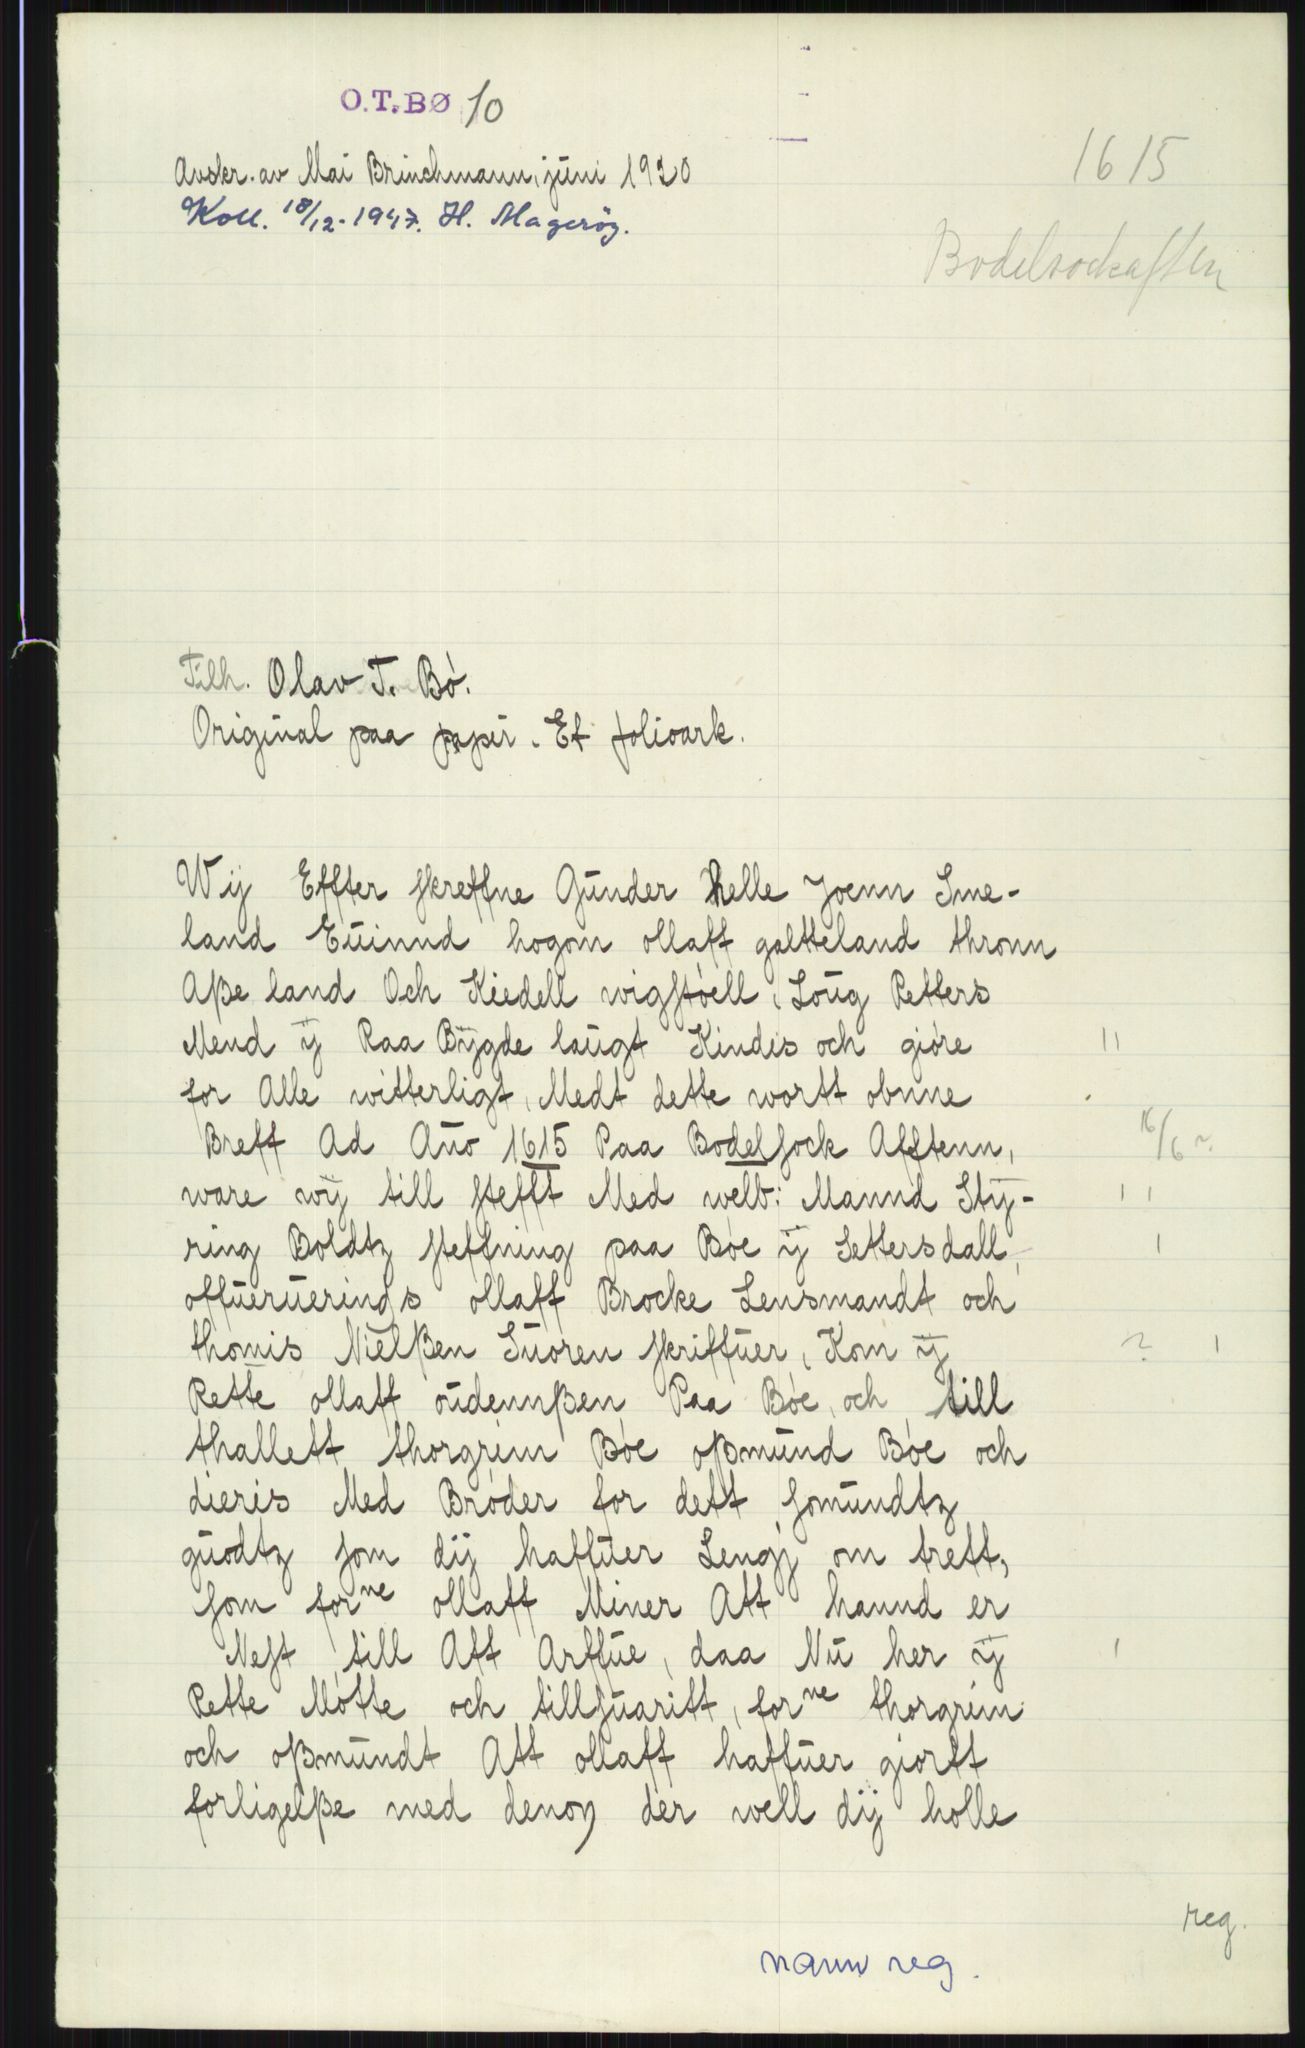 O.T.BØ 10
Avskr. av Mai Brinchmann, juni 1930
Koll. 18/12-1947. H. Magerøy.
1615
Bodelsockaften
Tilh. Olav T. Bø.
Original paa papir. Et folioark.
Wij Effter skreffne Gunder Helle Joenn Sme-
land Euinnd hogom ollaff galtteland thronn
Aße land Och Kiedell wigstøell, Loug Retters
Mend ij Raa Bygde laugt Kindis och giøre
11
for Alle witterligt, Medt dette wortt obnne
Breff Ad Año 1615 Paa Bodelsock Afftenn,
16/6 ?
ware wij till stefft Med welb: Mannd Sty-
11
ring Boldtz steffning paa Bøe ij Settersdall,
1
offueruerings ollaff Brocke Lensmandt och
thomis Nielßen Suoren skriffuer, Kom ij
? 1
Rette ollaff oudennßen Paa Bøe, och till
thallett thorgrim Bøe oßmund Bøe och
dieris Med Brøder for dett somundtz
guodtz som dij haffuer Lengj om trett,
som forne ollaff Miner Att hannd er
Nest till Att Arffue, daa Nu her ij
1
Rette Møtte och tillsuaritt, forne thorgrim
och oßmundt Att ollaff haffuer giortt
forligelße med denom der well dij holle
reg.
navn reg.